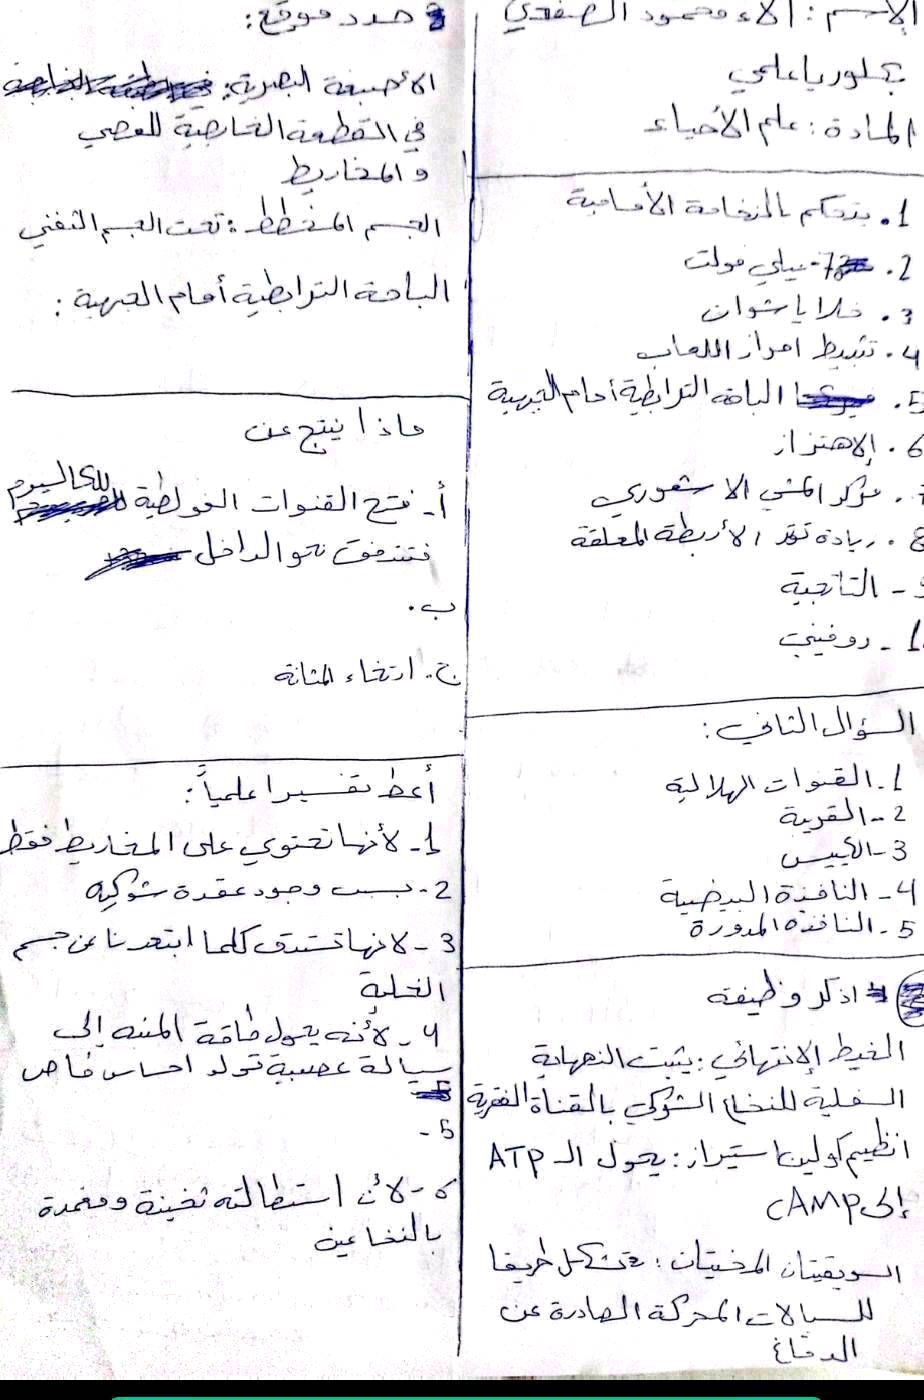 الاسم: آلاء محمود الصفدي
بكلوريا علمي
المادة: علم الأحياء
1. يتحكم بالنخامة الأمامية
2. -70 ميلي فولت
3. خلايا شوان
4. تثبيط افراز اللعاب
5. الباحة الترابطية أمام الجبهية
6. الاهتزاز
7. مركز المشي اللاشعوري
8. زيادة توتر الأربطة المعلقة
9- التائجية
1- روفيني
السؤال الثاني:
1. القنوات الهلالية
2- القريبة
3- الكييس
4- النافذة البيضية
5- النافذه المدورة
اذكر وظيفة
الخيط الانتهائي: يثبت النهاية
السفلية للنخاع الشوكي بالقناة الفقرية
انظيم كولين استيراز: يحول الـ ATP
إلى cAMP
السويقتان المخيتان: تشكل طريقا
للسيالات المحركة الصادرة عن
الدماغ
حدد موقع:
الأصبغة البصرية:
في القطعة الخارجية للعصي
والمخاريط
الجسم المخطط: تحت الجسم الثفني
الباحة الترابطية أمام الجبهية:
ماذا ينتج عن
أ- فتح القنوات الفولطية للكاليوم
فتتدفق نحو الداخل
ب.
ج. ارتخاء المثانة
أعط تفسيرا علمياً:
1- لأنها تحتوي على المخاريط فقط
2- بسبب وجود عقدة شوكيه
3- لانها تستدق كلما ابتعدنا عن جسم
الخلية
4- لأنه يحول طاقة المنبه إلى
سيالة عصبية تولد احساس خاص
5-
6- لأن استطالته ثخينة ومغمدة
بالنخاعين